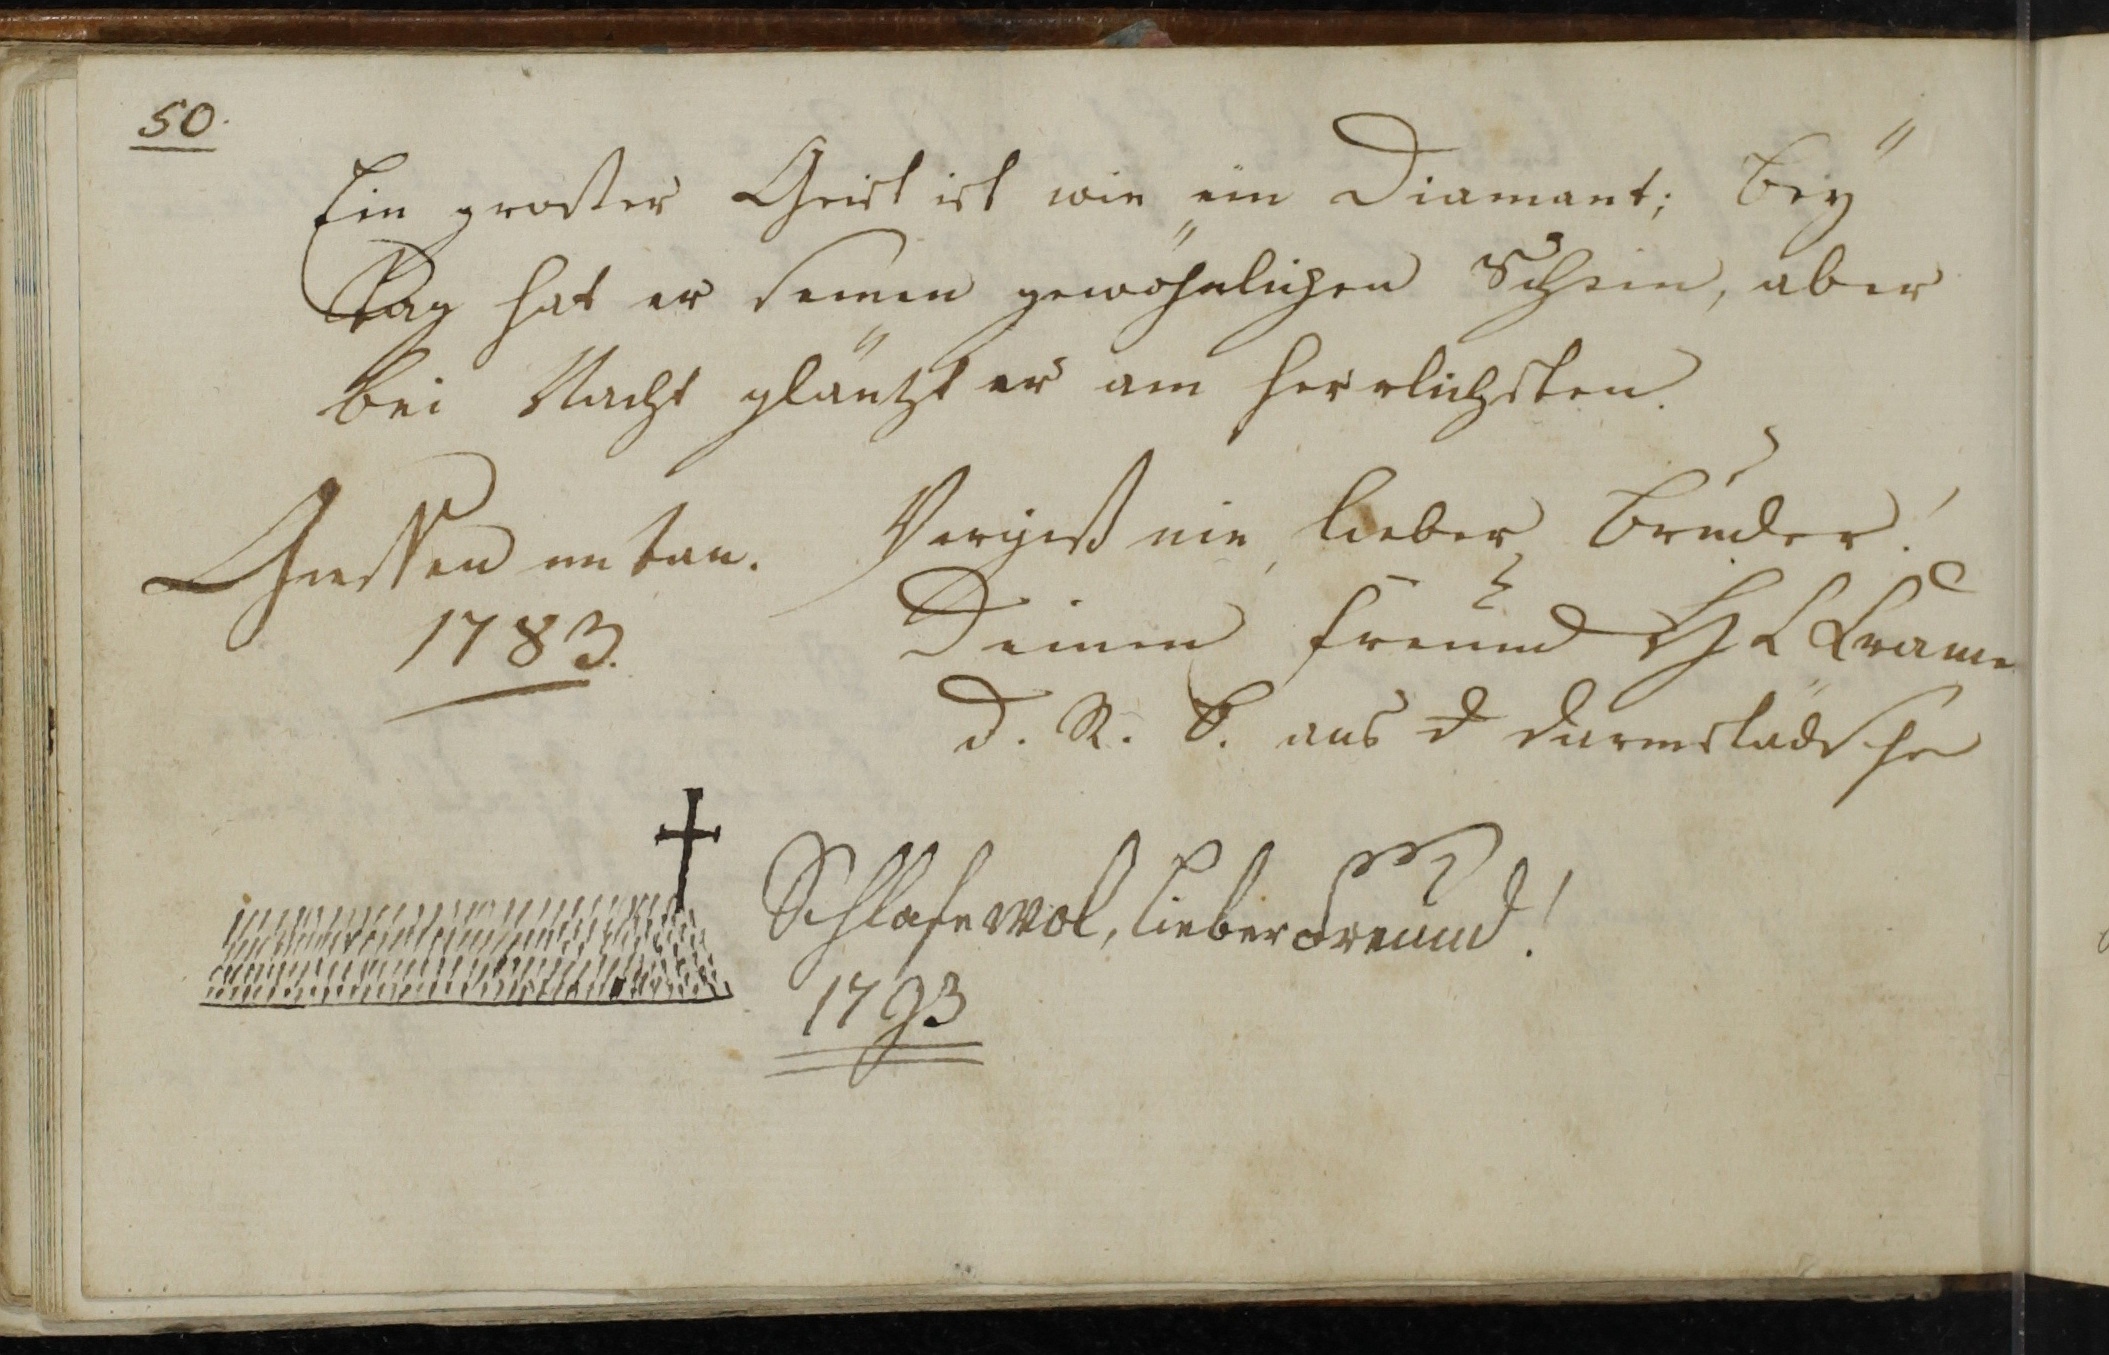 50.
Ein großer Geist ist wie ein Diamant; bey
Tag hat er seinen gewöhnlichen Schein, aber
bei Nacht gläntzt er am herrlichsten.
Giessen
1783.
Vergeß nie, lieber Bruder!
Deinen Freund HL
d. R. B. aus d
Schlafe wol, lieber Freund!
1793